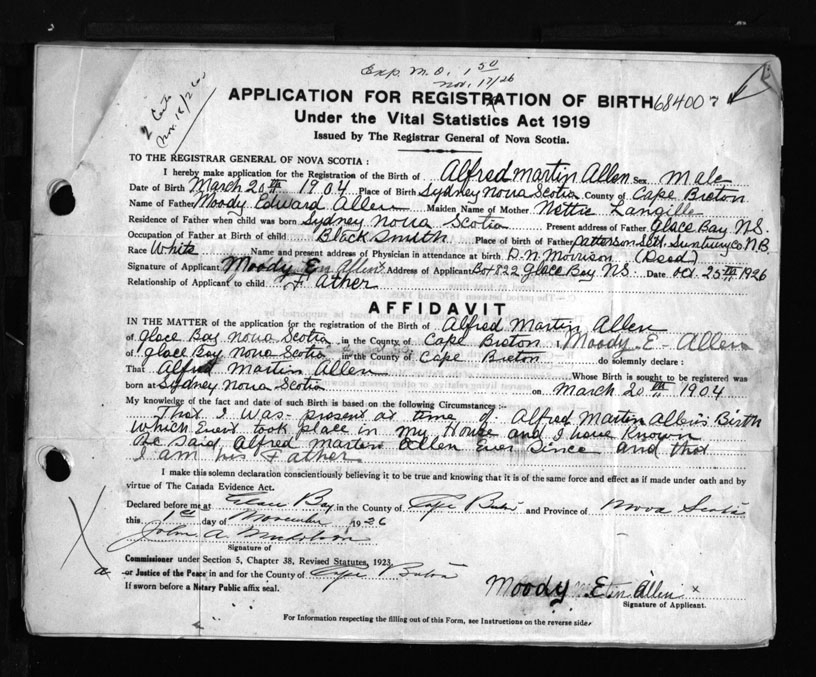 Exp. M.O. 1 50
Nov. 17/26
2 Certs
Nov. 18/26
APPLICATION FOR REGISTRATION OF BIRTH 68400 7
Under the Vital Statistics Act 1919
Issued by The Registrar General of Nova Scotia.
TO THE REGISTRAR GENERAL OF NOVA SCOTIA :
I hereby make application for the Registration of the Birth of Alfred Martin Allen Sex Male
Date of Birth March 20th 1904 Place of Birth Sydney Nova Scotia County of Cape Breton
Name of Father Moody Edward Allen Maiden Name of Mother Nettie Langille
Residence of Father when child was born Sydney Nova Scotia Present address of Father Glace Bay N.S.
Occupation of Father at Birth of child Black Smith Place of birth of Father Patterson Setl. Sunbury Co N.B.
Race White Name and present address of Physician in attendance at birth D.N. Morrison (Dead)
Signature of Applicant Moody E Allen x Address of Applicant Box 822 Glace Bay N.S. Date Oct. 25th 1926
Relationship of Applicant to child Father
AFFIDAVIT
IN THE MATTER of the application for the registration of the Birth of Alfred Martin Allen
of Glace Bay Nova Scotia in the County of Cape Breton I Moody E- Allen
of Glace Bay Nova Scotia in the County of Cape Breton do solemnly declare :
That Alfred Martin Allen Whose Birth is sought to be registered was
born at Sydney Nova Scotia on March 20th 1904
My knowledge of the fact and date of such Birth is based on the following Circumstances :-
That I was present at time of Alfred Martin Allen's Birth
which Event took place in my House and I have Known
the Said Alfred Marten Allen Ever Since and that
I am his Father
I make this solemn declaration conscientiously believing it to be true and knowing that it is of the same force and effect as if made under oath and by
virtue of The Canada Evidence Act.
Declared before me at Glace Bay in the County of Cape Breton and Province of Nova Scotia
this 1st day of November 1926
John A
Signature of
Commissioner under Section 5, Chapter 38, Revised Statutes, 1923
a or Justice of the Peace in and for the County of Cape Breton
If sworn before a Notary Public affix seal.
Moody E Allen x
Signature of Applicant.
For Information respecting the filling out of this Form, see Instructions on the reverse side.